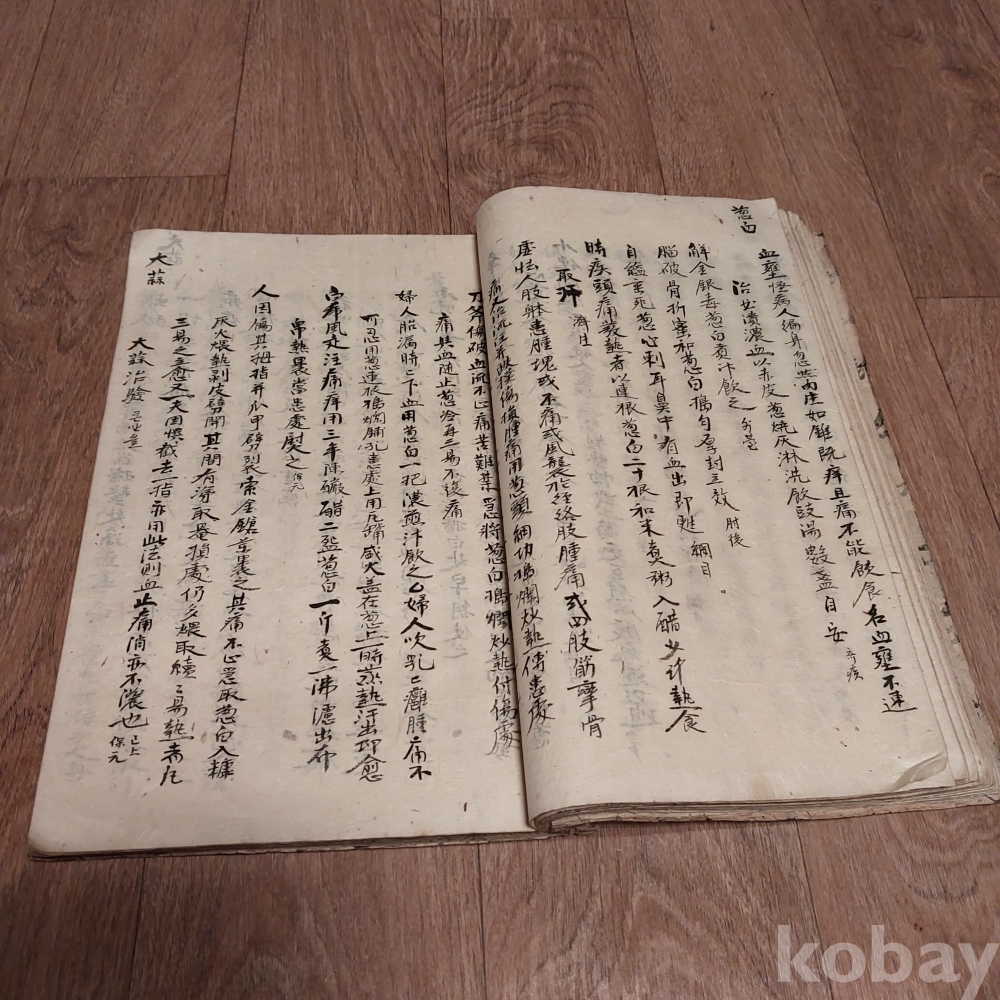 葱白
血壅怪病人徧身忽然肉生如錐既痒且痛不能飲食名血壅不速
治必潰濃血以赤皮葱燒灰淋洗飲豉湯數盞自安 奇疾
解金銀毒葱白煑汁飲之
腦破骨折蜜和葱白搗匀厚封立效 肘後
自縊垂死葱心刺耳鼻中有血出即甦 綱目
時疾頭痛發熱者以連根葱白二十根和米煑粥入醋少許熱食
取汗 濟生
虛怯人肢躰患腫塊或不痛或風襲於經絡肢腫痛或四肢筋攣骨
痛又治流注并跌撲傷損腫痛用葱頭細切搗爛炒熱傅患處
刀斧傷破血流不止痛苦難禁急將葱白搗爛炒熱付傷處
痛與血随止葱冷再三易不復痛
婦人胎漏時時下血用葱白一把濃煎汁飲之乙婦人吹乳乳癰腫痛不
可忍用葱連根搗爛鋪乳患處上用瓦罐盛火盖在葱上一時蒸熱汗出即愈
白帍風走注痛痒用三年陳釅醋二盌葱白一斤煑一沸濾出布
帛熱裹當患處熨之 保元
人因傷其拇指并爪甲劈裂索金鎗藥裹之其痛不止急取葱白入煻
灰火煨熱剥皮劈開其間有涕取罨損處仍多煨取續續易熱者凡
三易之全愈又一夫因誤截去一指亦用此法則血止痛消亦不濃也 已上 保元
大蒜治驗
大蒜
kobay